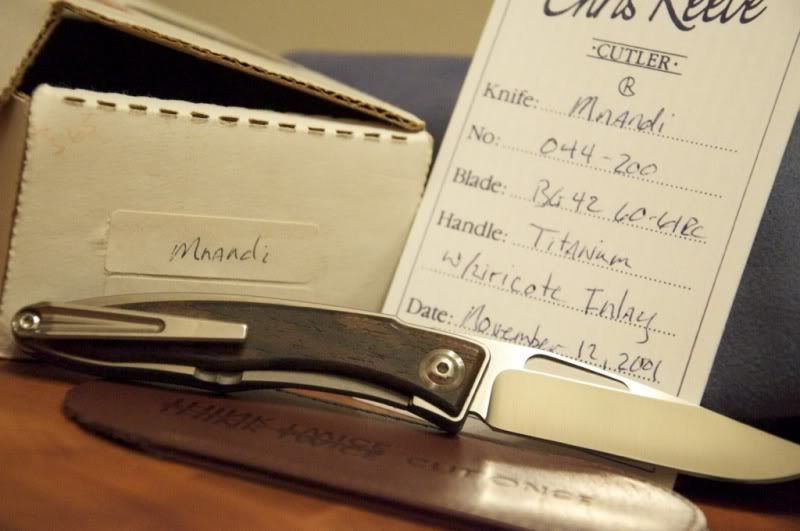 Mnandi
Chris Reeve
·CUTLER·
®
Knife: Mnandi
No: 044-200
Blade: BG42 60-61RC
Handle: Titanium
w/ziricote Inlay
Date: November 12, 2001
CUT ONCE